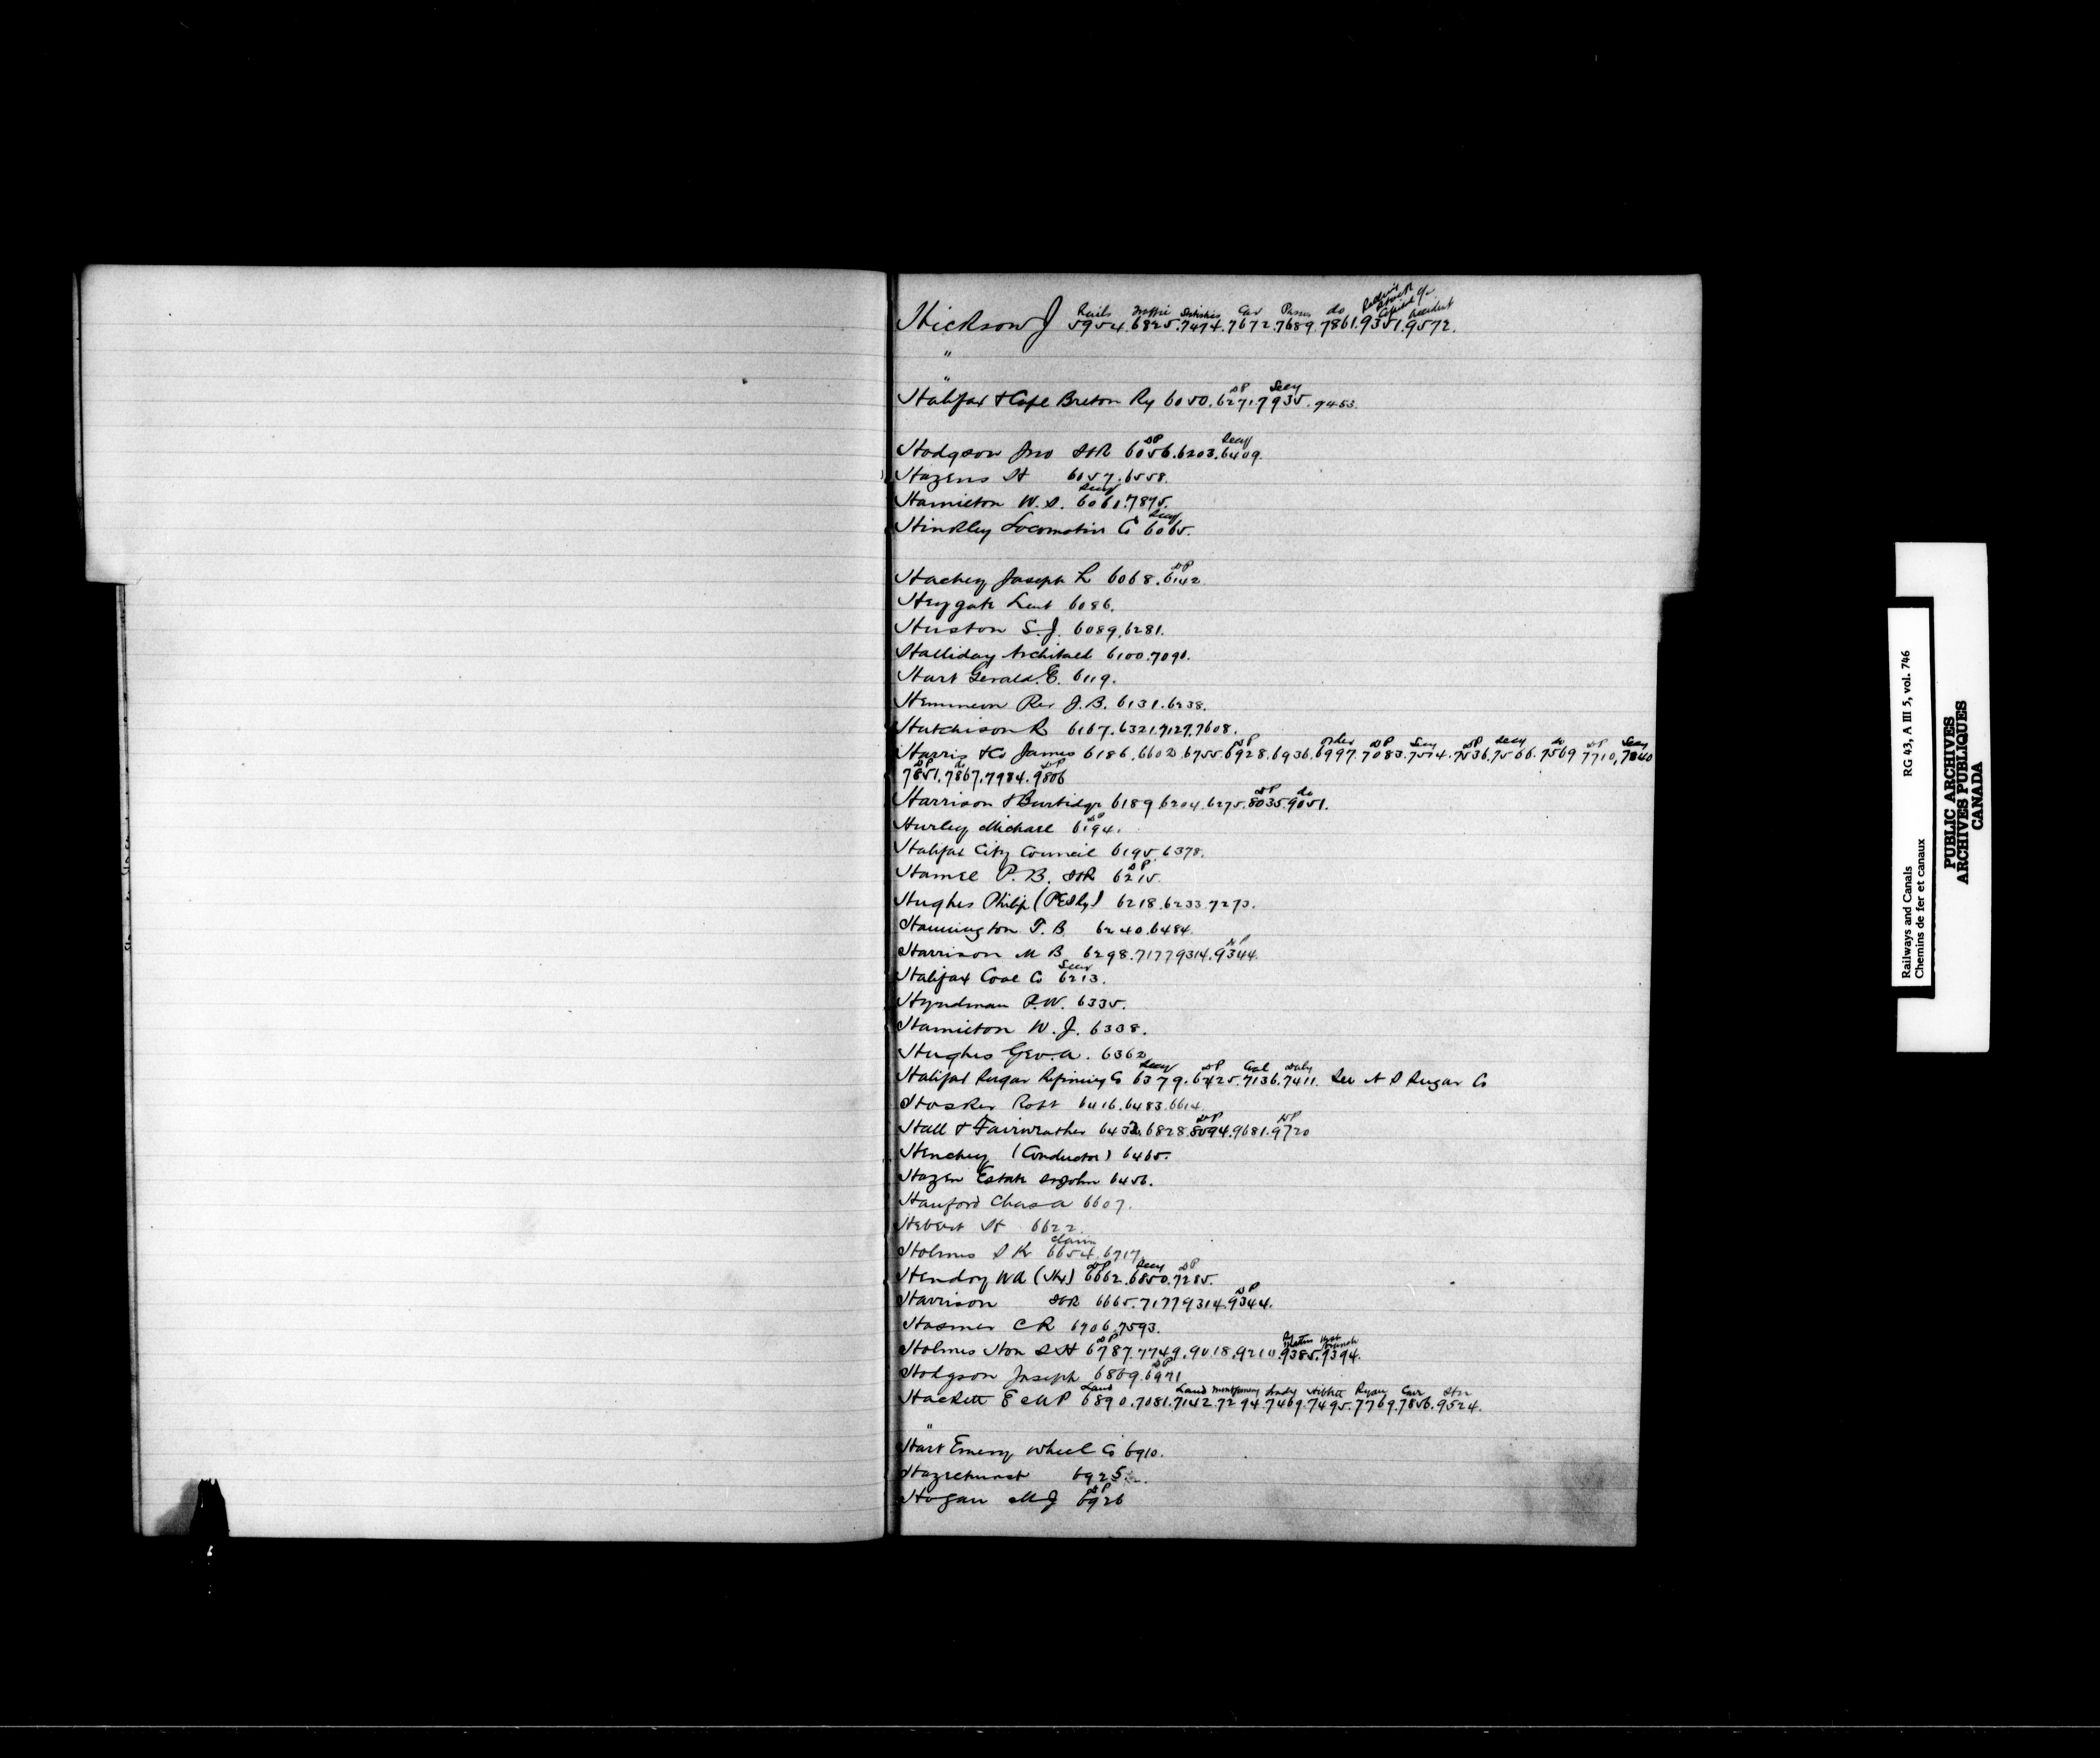 Rails Traffic Statistics Car Passes do Rolling Stock Capital a/c Accident
Hickson J 5954.6825.7474.7672.7689.7861.9351.9572.
"
"
DP Secy
Halifax & Cape Breton Ry 6050.6271.7935.9453.
DP Secy
Hodgson Jno 6056.6203.6409.
Hazens H 6057.6558.
Secy
Hamilton W.S. 6061.7875.
Secy
Hinkley Locomotive Co 6065.
DP
Hachey Joseph L 6068.6142
Heygate Lieut 6086.
Huston S.J. 6089.6281.
Halliday Archibald 6100.7090.
Hart Gerald E. 6119.
Hemmeon Rev J.B. 6131.6238.
Hutchison R 6167.6321.7129.7608.
DP Order DP Secy DP Secy do DP Secy
Harris & Co James 6186.6602.6755.6928.6936.6997.7083.7514.7536.7566.7569 7710,7840
DP do DP
7851.7867.7984.9806
DP do
Harrison & Burbidge 6189 6204.6275.8035.9051.
DP
Hurley Michael 6194.
Halifax City Council 6195.6378.
DP
Hamel P.B. 6215.
Hughes Philip 6218.6233.7273.
Hannington T.B. 6240.6484.
DP
Harrison M B 6298.7177 9314.9344.
Secy
Halifax Coal Co 6213.
Hyndman P.W. 6335.
Hamilton W.J. 6338.
Hughes Geo. A. 6362
Secy DP Coal Duty
Halifax Sugar Refining Co 6379.6425.7136.7411. See N S Sugar Co
Hosker Robt 6416.6483.6614.
DP DP
Hall & Fairweather 6432.6828.8094.9681.9720
Henchey (Conductor) 6465.
Hazen Estate St John 6456.
Hanford Chas A 6607.
Hebert H 6622.
Claim
Holmes S K 6654.6717.
DP Secy DP
Hendry WA (Hx) 6662.6850.7285.
DP
Harrison 6665.7177 9314.9344.
Hosmer C R 6706.7593.
DP Branch
Holmes Hon S H 6787.7749.9018.9210.9385.9394.
DP
Hodgson Joseph 6809.6971
Land Land Montgomery Brady Ryan Carr
Hackett E MP 6890.7081.7142.7294.7469.7495.7769.7856.9524.
"
Hart Emery Wheel Co 6910.
Hazlehurst 6925.
DP
Hogan M J 6926
Railways and Canals RG 43, A III 5, vol. 746
Chemins de fer et canaux
PUBLIC ARCHIVES
ARCHIVES PUBLIQUES
CANADA